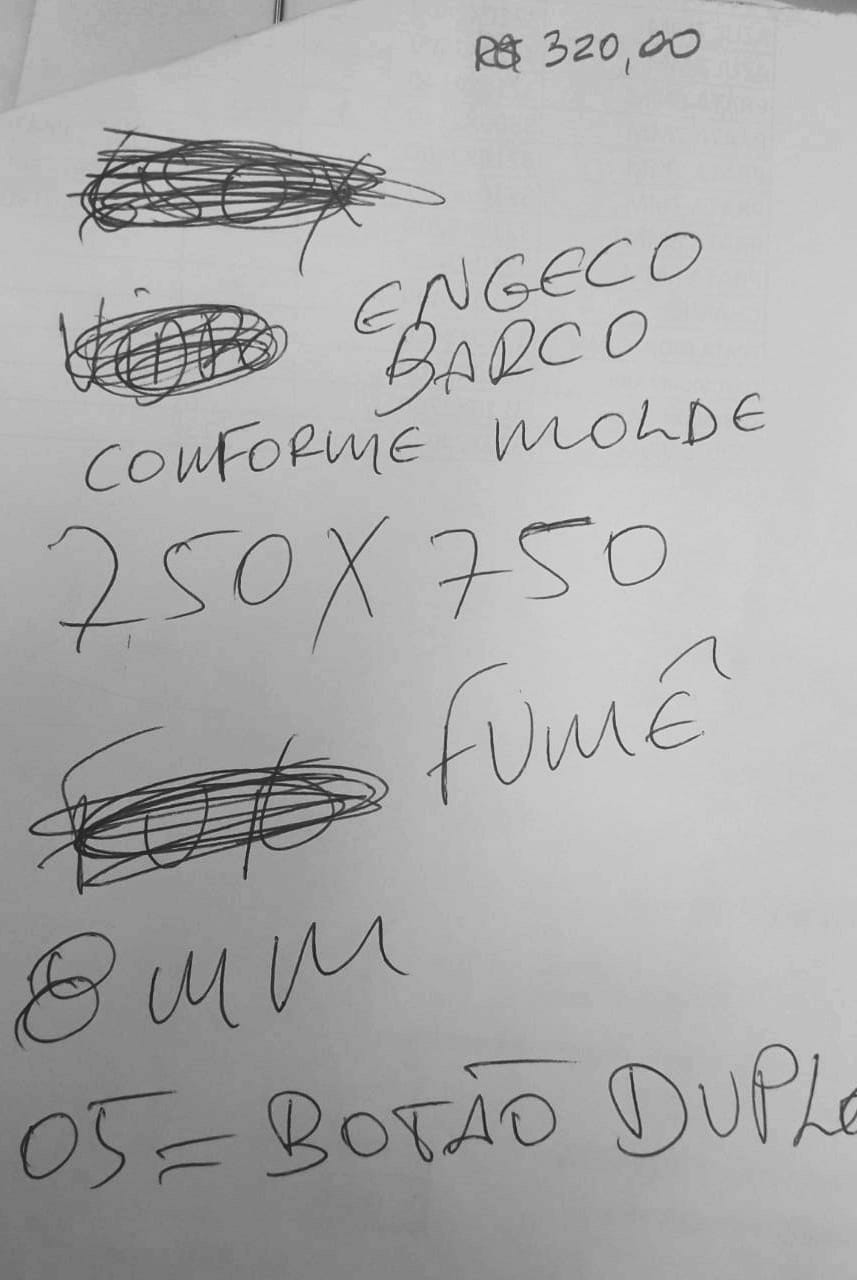 R$ 320,00
ENGECO
BARCO
CONFORME MOLDE
250 X 750
FUMÊ
8 MM
05 = BOTÃO DUPLO